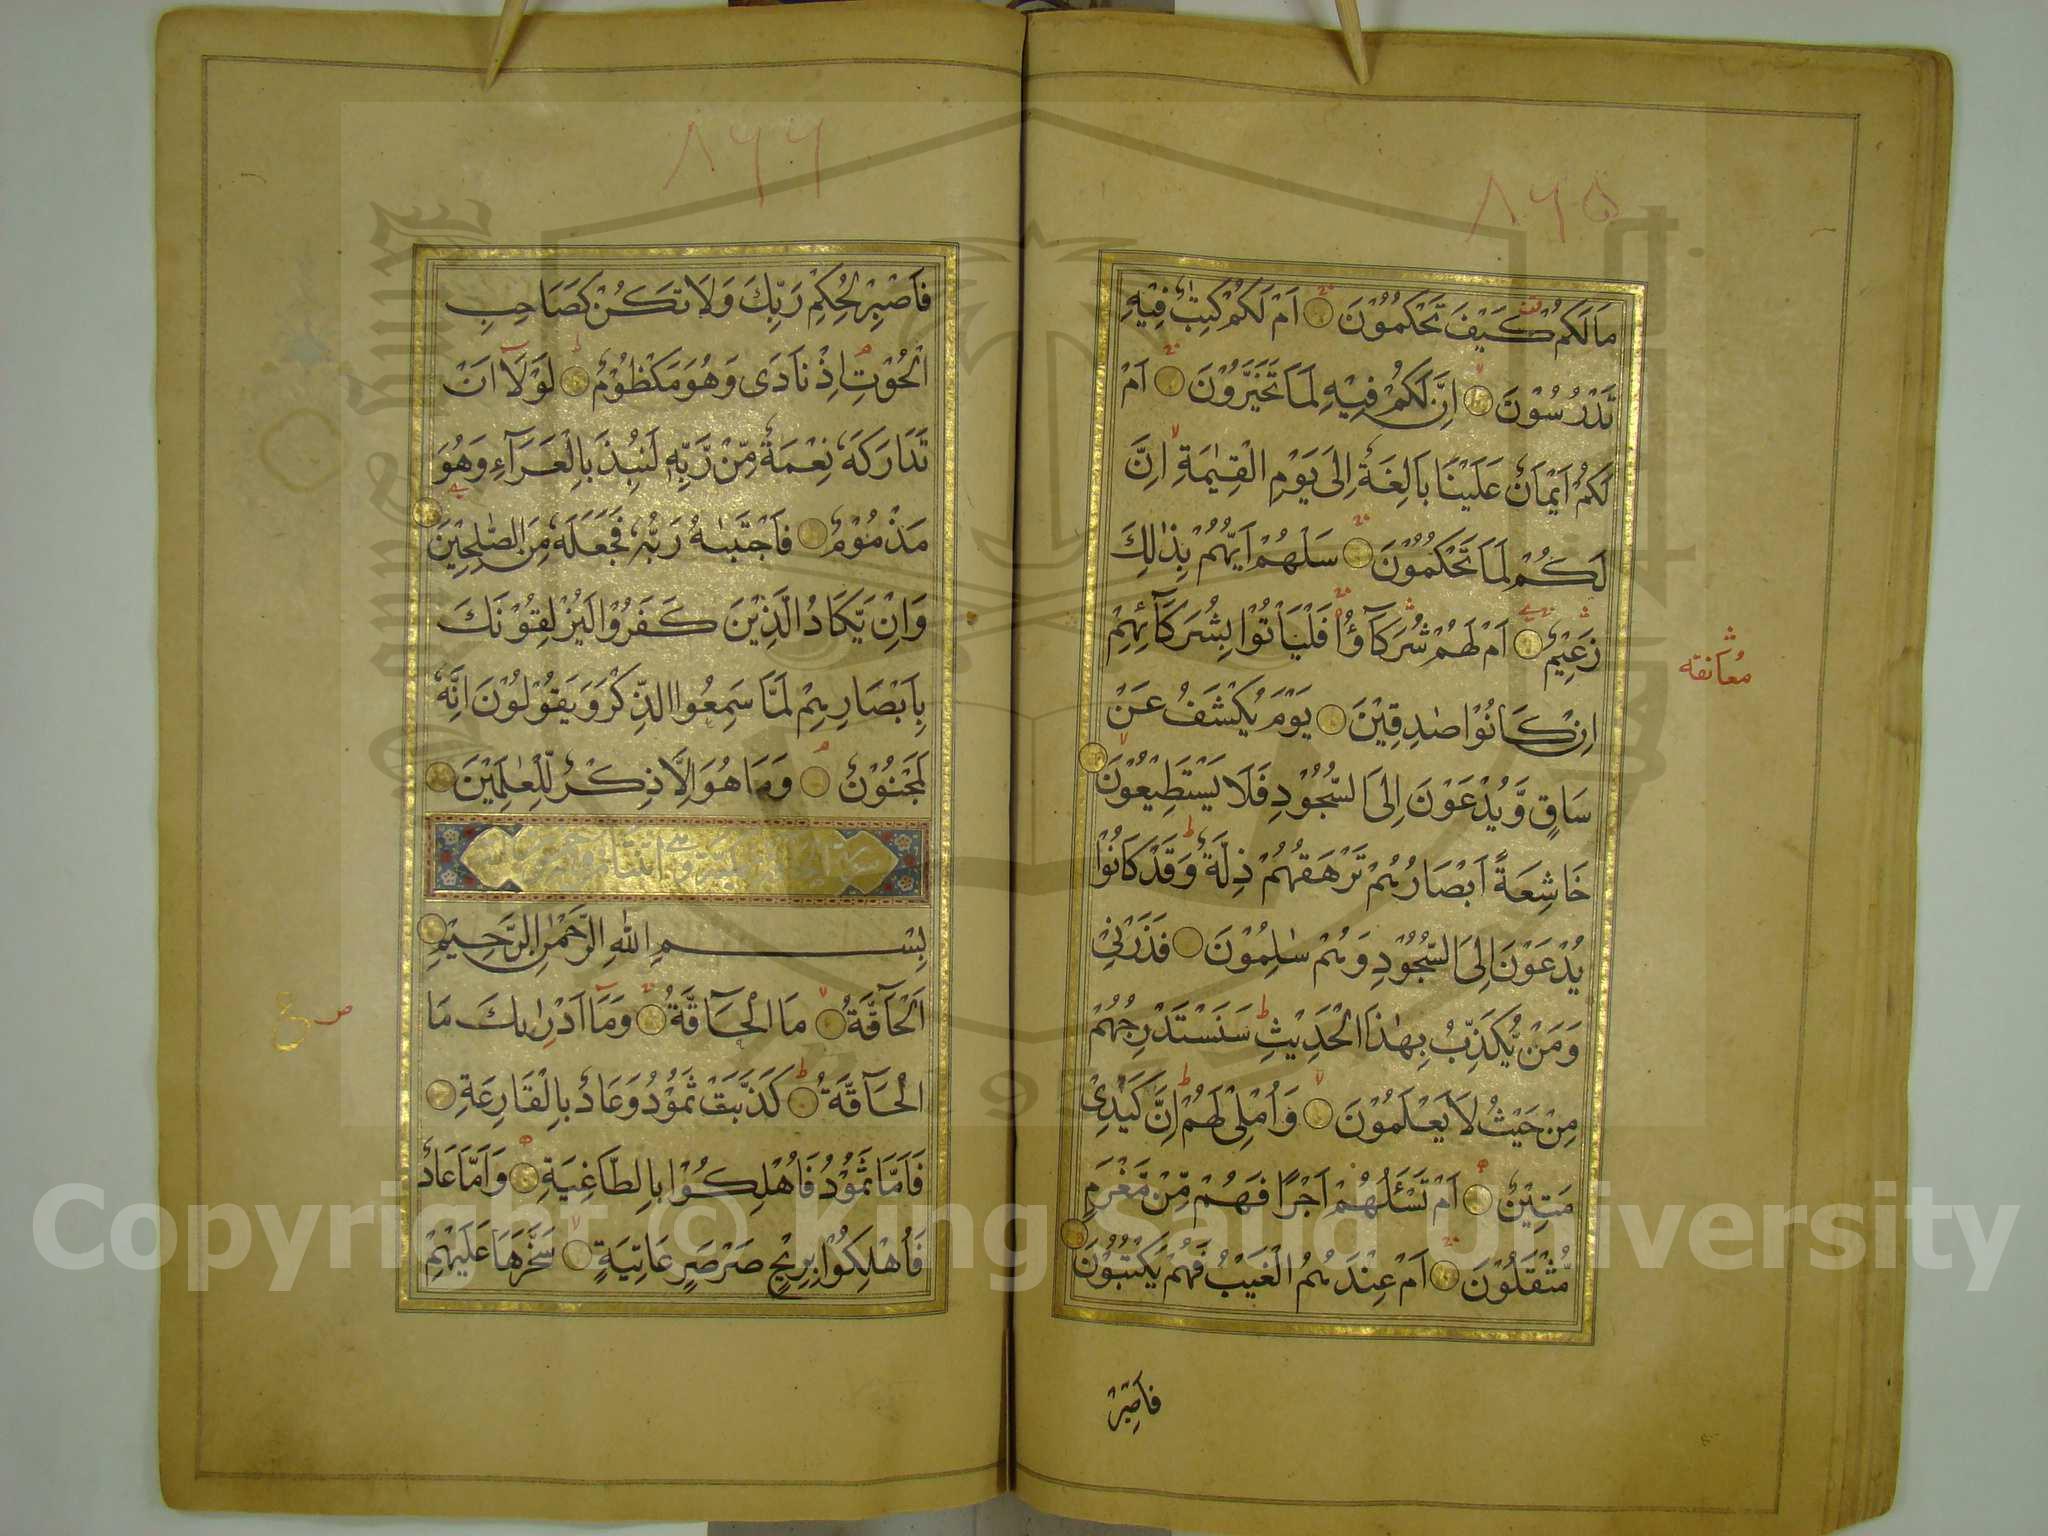 ٨٦٥
مَا لَكُمْ كَيْفَ تَحْكُمُوْنَ اَمْ لَكُمْ كِتٰبٌ فِيْهِ
تَدْرُسُوْنَ اِنَّ لَكُمْ فِيْهِ لَمَا تَخَيَّرُوْنَ اَمْ
لَكُمْ اَيْمَانٌ عَلَيْنَا بَالِغَةٌ اِلٰى يَوْمِ الْقِيٰمَةِ اِنَّ
لَكُمْ لَمَا تَحْكُمُوْنَ سَلْهُمْ اَيُّهُمْ بِذٰلِكَ
زَعِيْمٌ اَمْ لَهُمْ شُرَكَآؤُا فَلْيَأْتُوْا بِشُرَكَآئِهِمْ
اِنْ كَانُوْا صٰدِقِيْنَ يَوْمَ يُكْشَفُ عَنْ
سَاقٍ وَّيُدْعَوْنَ اِلَى السُّجُوْدِ فَلَا يَسْتَطِيْعُوْنَ
خَاشِعَةً اَبْصَارُهُمْ تَرْهَقُهُمْ ذِلَّةٌ وَقَدْ كَانُوْا
يُدْعَوْنَ اِلَى السُّجُوْدِ وَهُمْ سٰلِمُوْنَ فَذَرْنِيْ
وَمَنْ يُّكَذِّبُ بِهٰذَا الْحَدِيْثِ سَنَسْتَدْرِجُهُمْ
مِنْ حَيْثُ لَا يَعْلَمُوْنَ وَاُمْلِيْ لَهُمْ اِنَّ كَيْدِيْ
مَتِيْنٌ اَمْ تَسْـَٔلُهُمْ اَجْرًا فَهُمْ مِّنْ مَّغْرَمٍ
مُّثْقَلُوْنَ اَمْ عِنْدَهُمُ الْغَيْبُ فَهُمْ يَكْتُبُوْنَ
معانقه
فَاصْبِرْ
٨٦٦
فَاصْبِرْ لِحُكْمِ رَبِّكَ وَلَا تَكُنْ كَصَاحِبِ
الْحُوْتِ اِذْ نَادٰى وَهُوَ مَكْظُوْمٌ لَوْلَآ اَنْ
تَدَارَكَهٗ نِعْمَةٌ مِّنْ رَّبِّهٖ لَنُبِذَ بِالْعَرَآءِ وَهُوَ
مَذْمُوْمٌ فَاجْتَبٰىهُ رَبُّهٗ فَجَعَلَهٗ مِنَ الصّٰلِحِيْنَ
وَاِنْ يَّكَادُ الَّذِيْنَ كَفَرُوْا لَيُزْلِقُوْنَكَ
بِاَبْصَارِهِمْ لَمَّا سَمِعُوا الذِّكْرَ وَيَقُوْلُوْنَ اِنَّهٗ
لَمَجْنُوْنٌ وَمَا هُوَ اِلَّا ذِكْرٌ لِّلْعٰلَمِيْنَ
بِسْمِ اللّٰهِ الرَّحْمٰنِ الرَّحِيْمِ
اَلْحَآقَّةُ مَا الْحَآقَّةُ وَمَآ اَدْرٰىكَ مَا
الْحَآقَّةُ كَذَّبَتْ ثَمُوْدُ وَعَادٌ بِالْقَارِعَةِ
فَاَمَّا ثَمُوْدُ فَاُهْلِكُوْا بِالطَّاغِيَةِ وَاَمَّا عَادٌ
فَاُهْلِكُوْا بِرِيْحٍ صَرْصَرٍ عَاتِيَةٍ سَخَّرَهَا عَلَيْهِمْ
ص ع
Copyright © King Saud University